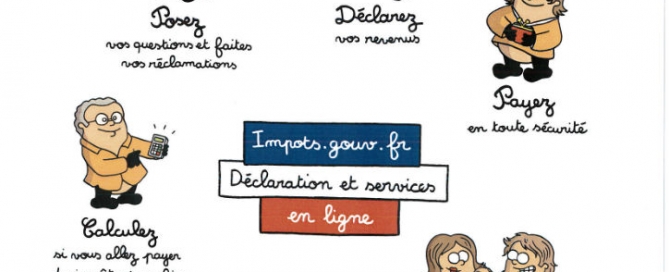 Posez
vos questions et faites
vos réclamations
Déclarez
vos revenus
Payez
en toute sécurité
Impots.gouv.fr
Déclaration et services
en ligne
Calculez
si vous allez payer